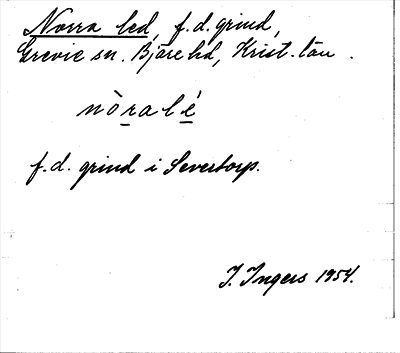 Norra led, f.d. grind,
Grevie sn. Bjäre hd, Krist. län.
nòralé
f.d. grind i Severtorp.
I. Ingers 1954.